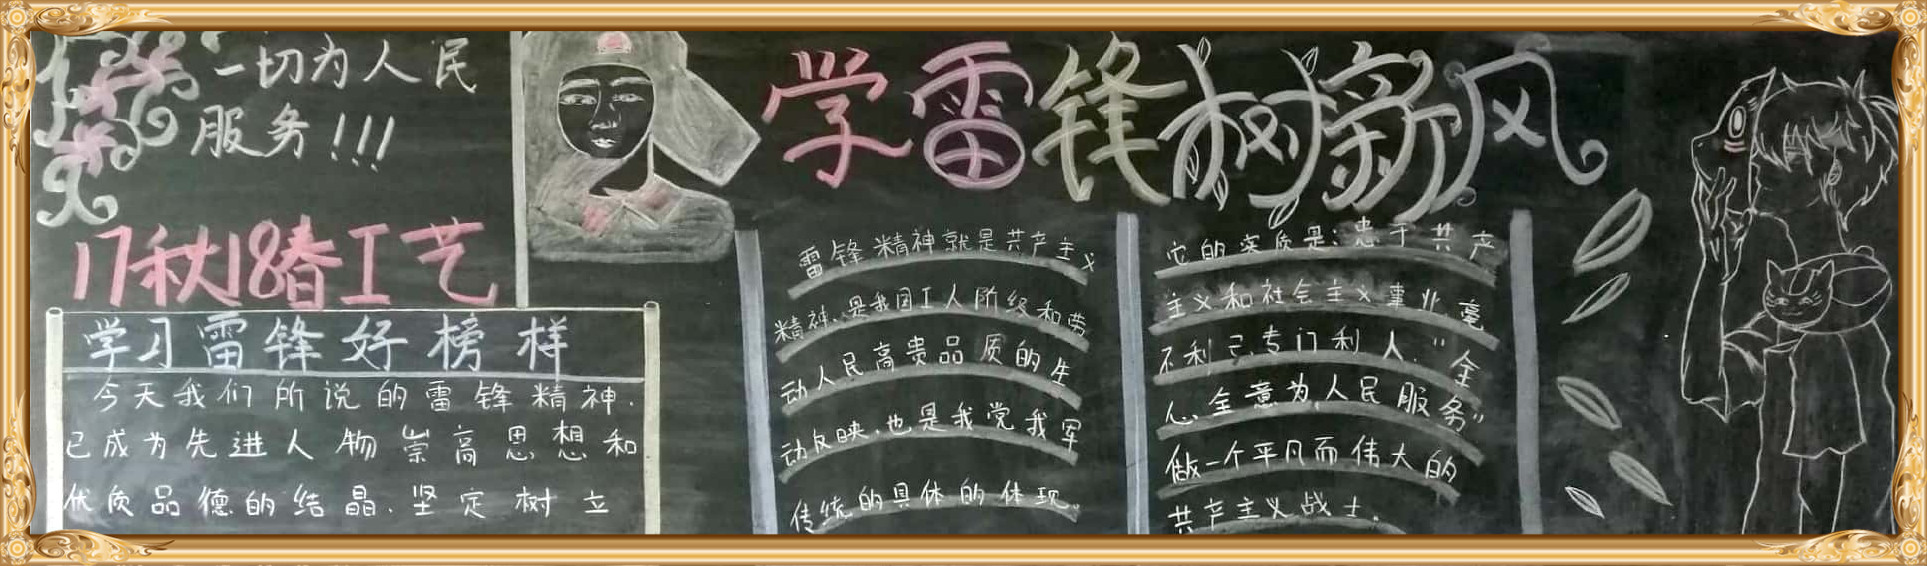 一切为人民
服务!!!
17秋18春工艺
学习雷锋好榜样
今天我们所说的雷锋精神.
已成为先进人物崇高思想和
优质品德的结晶.坚定树立
学雷锋树新风
雷锋精神就是共产主义
精神.是我国工人阶级和劳
动人民高贵品质的生
动反映.也是我党我军
传统的具体的体现。
它的实质是:忠于共产
主义和社会主义事业.毫
不利己.专门利人."全
心全意为人民服务"
做一个平凡而伟大的
共产主义战士.